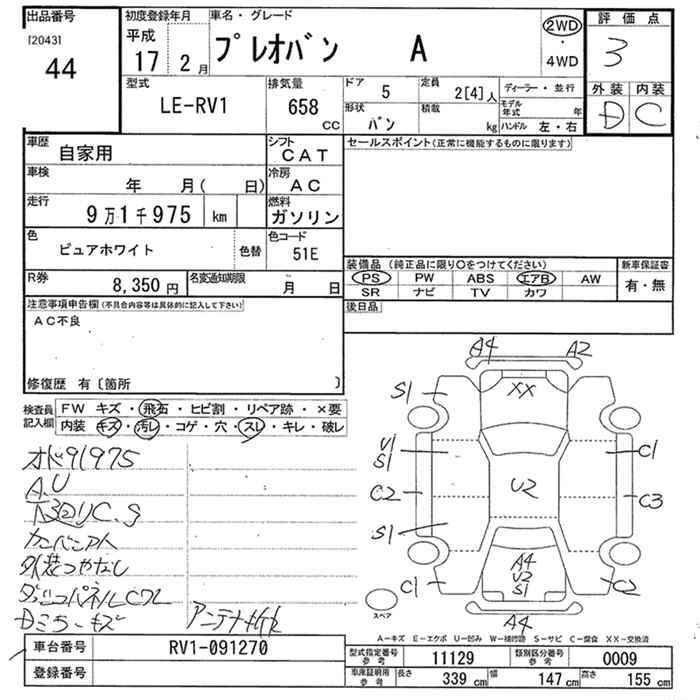 出品番号
[2043]
44
初度登録年月
平成
17 2月
車名・グレード
プレオバン A
2WD
・
4WD
評価点
3
外装 内装
D C
型式
LE-RV1
排気量
658
CC
ドア
5
定員
2[4]人
形状
バン
積載
kg
ディーラー・並行
モデル年式 年
ハンドル 左・右
車歴
自家用
シフト
CAT
車検
年 月( 日)
冷房
AC
走行
9万1千975 km
燃料
ガソリン
色
ピュアホワイト
色替
色コード
51E
R券
8,350円
名変通知期限
月 日
セールスポイント(正常に機能するものに限ります)
装備品(純正品に限り〇をつけてください)
PS PW ABS エアB AW
SR ナビ TV カワ
新車保証書
有・無
後日品
注意事項申告欄(不具合内容等は具体的に記入して下さい)
AC不良
修復歴 有〔箇所 〕
検査員記入欄
FW キズ・飛石・ヒビ割・リペア跡・×要
内装 キズ・汚レ・コゲ・穴・スレ・キレ・破レ
オド91975
A.U
下回りC.S
カンバンアト
外装つやなし
Dミラーキズ
アンテナ
A4 A2
S1
XX
U1
S1
C1
C2
U2
C3
S1
A4
U2
S1
C1
C2
A4
スペア
A-キズ E-エクボ U-凹み W-補修跡 S-サビ C-腐食 XX-交換済
車台番号
RV1-091270
登録番号
型式指定番号
参考
11129
類別区分番号
参考
0009
車庫証明用
参考
長さ
339 cm
幅
147 cm
高さ
155 cm